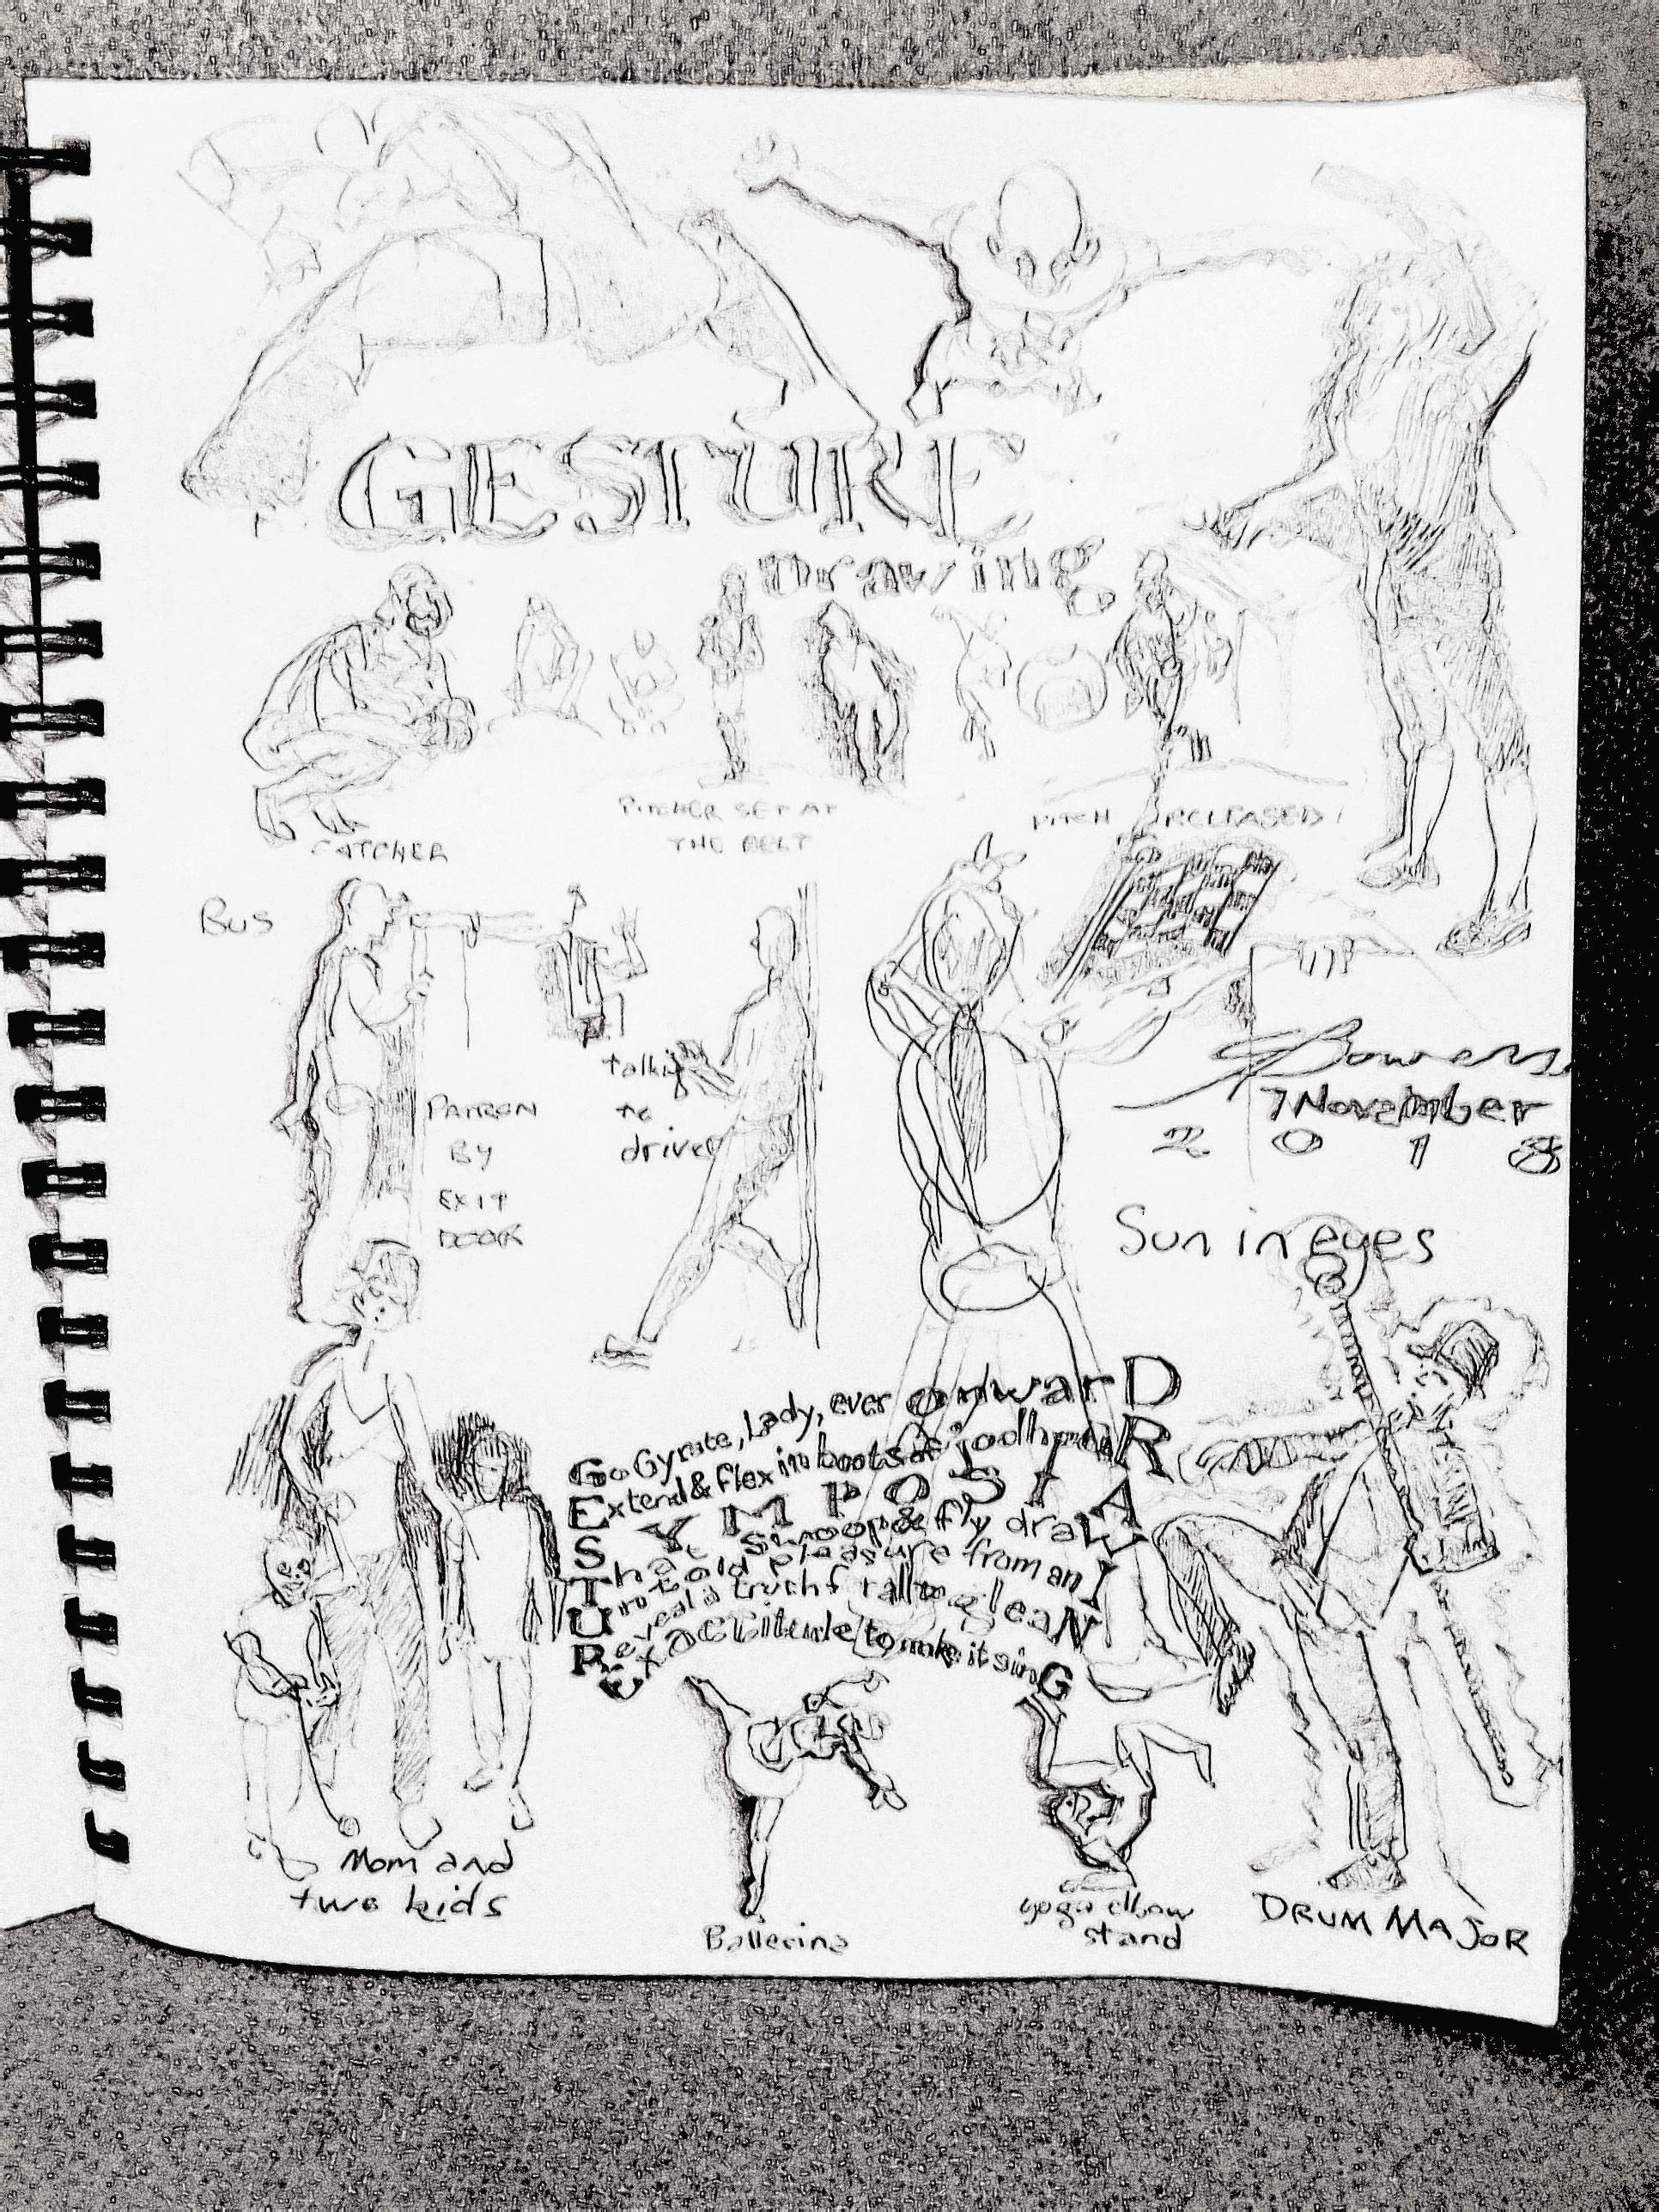 GESTURE
Drawing
CATCHER
PITCHER SET AT
THE BELT
PITCH RELEASED
Bus
PATRON
BY
EXIT
DOOR
talking
to
driver
Bowers
7 November
2018
Sun in eyes
Go Gyrate, Lady, ever onwarD
Extend & flex in boots of jodhpuR
SYMPOSIA
That swoop & fly draW
old pleasure from an I
Reveal a truth gleaN
Exactitude to make it sinG
Mom and
two kids
Ballerina
yoga elbow
stand
DRUM MAJOR